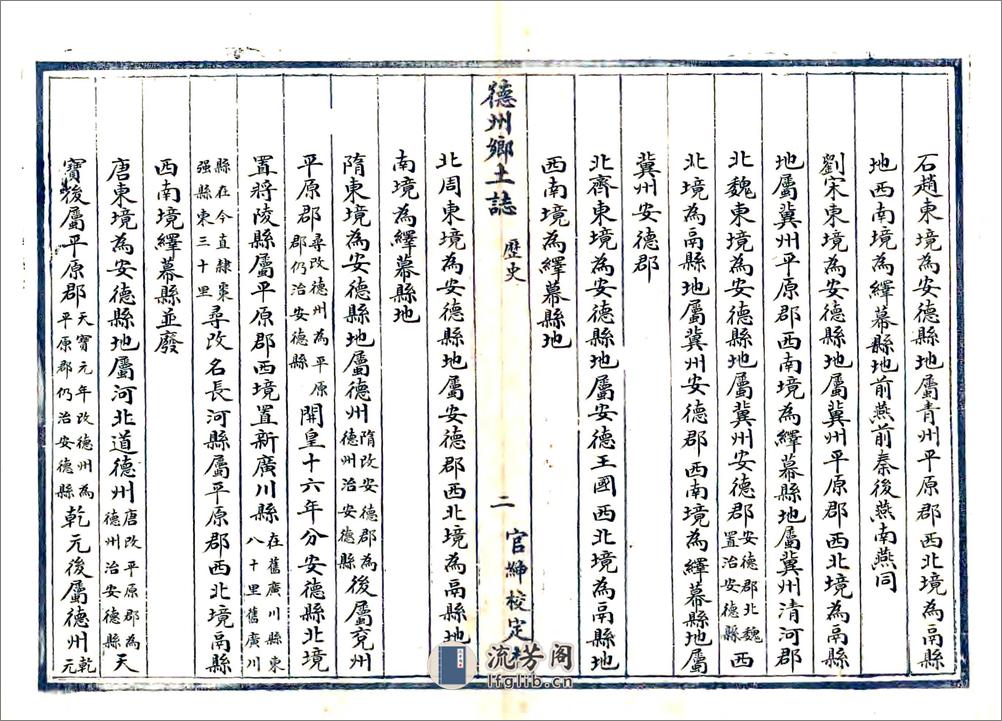 石趙東境為安德縣地屬青州平原郡西北境為鬲縣
地西南境為繹幕縣地前燕前秦後燕南燕同
劉宋東境為安德縣地屬冀州平原郡西北境為鬲縣
地屬冀州平原郡西南境為繹幕縣地屬冀州清河郡
北魏東境為安德縣地屬冀州安德郡安德郡北魏置治安德縣西
北境為鬲縣地屬冀州安德郡西南境為繹幕縣地屬
冀州安德郡
北齊東境為安德縣地屬安德王國西北境為鬲縣地
西南境為繹幕縣地
德州鄉土誌 歷史 二 官紳校定
北周東境為安德縣地屬安德郡西北境為鬲縣地
南境為繹幕縣地
隋東境為安德縣地屬德州隋改安德郡為德州治安德縣後屬兗州
平原郡尋改德州為平原郡仍治安德縣開皇十六年分安德縣北境
置將陵縣屬平原郡西境置新廣川縣在舊廣川縣東八十里舊廣川
縣在今直隸棗强縣東三十里尋改名長河縣屬平原郡西北境鬲縣
西南境繹幕縣並廢
唐東境為安德縣地屬河北道德州唐改平原郡為德州治安德縣天
寶後屬平原郡天寶元年改德州為平原郡仍治安德縣乾元後屬德州乾元
流芳阁
lfglib.cn